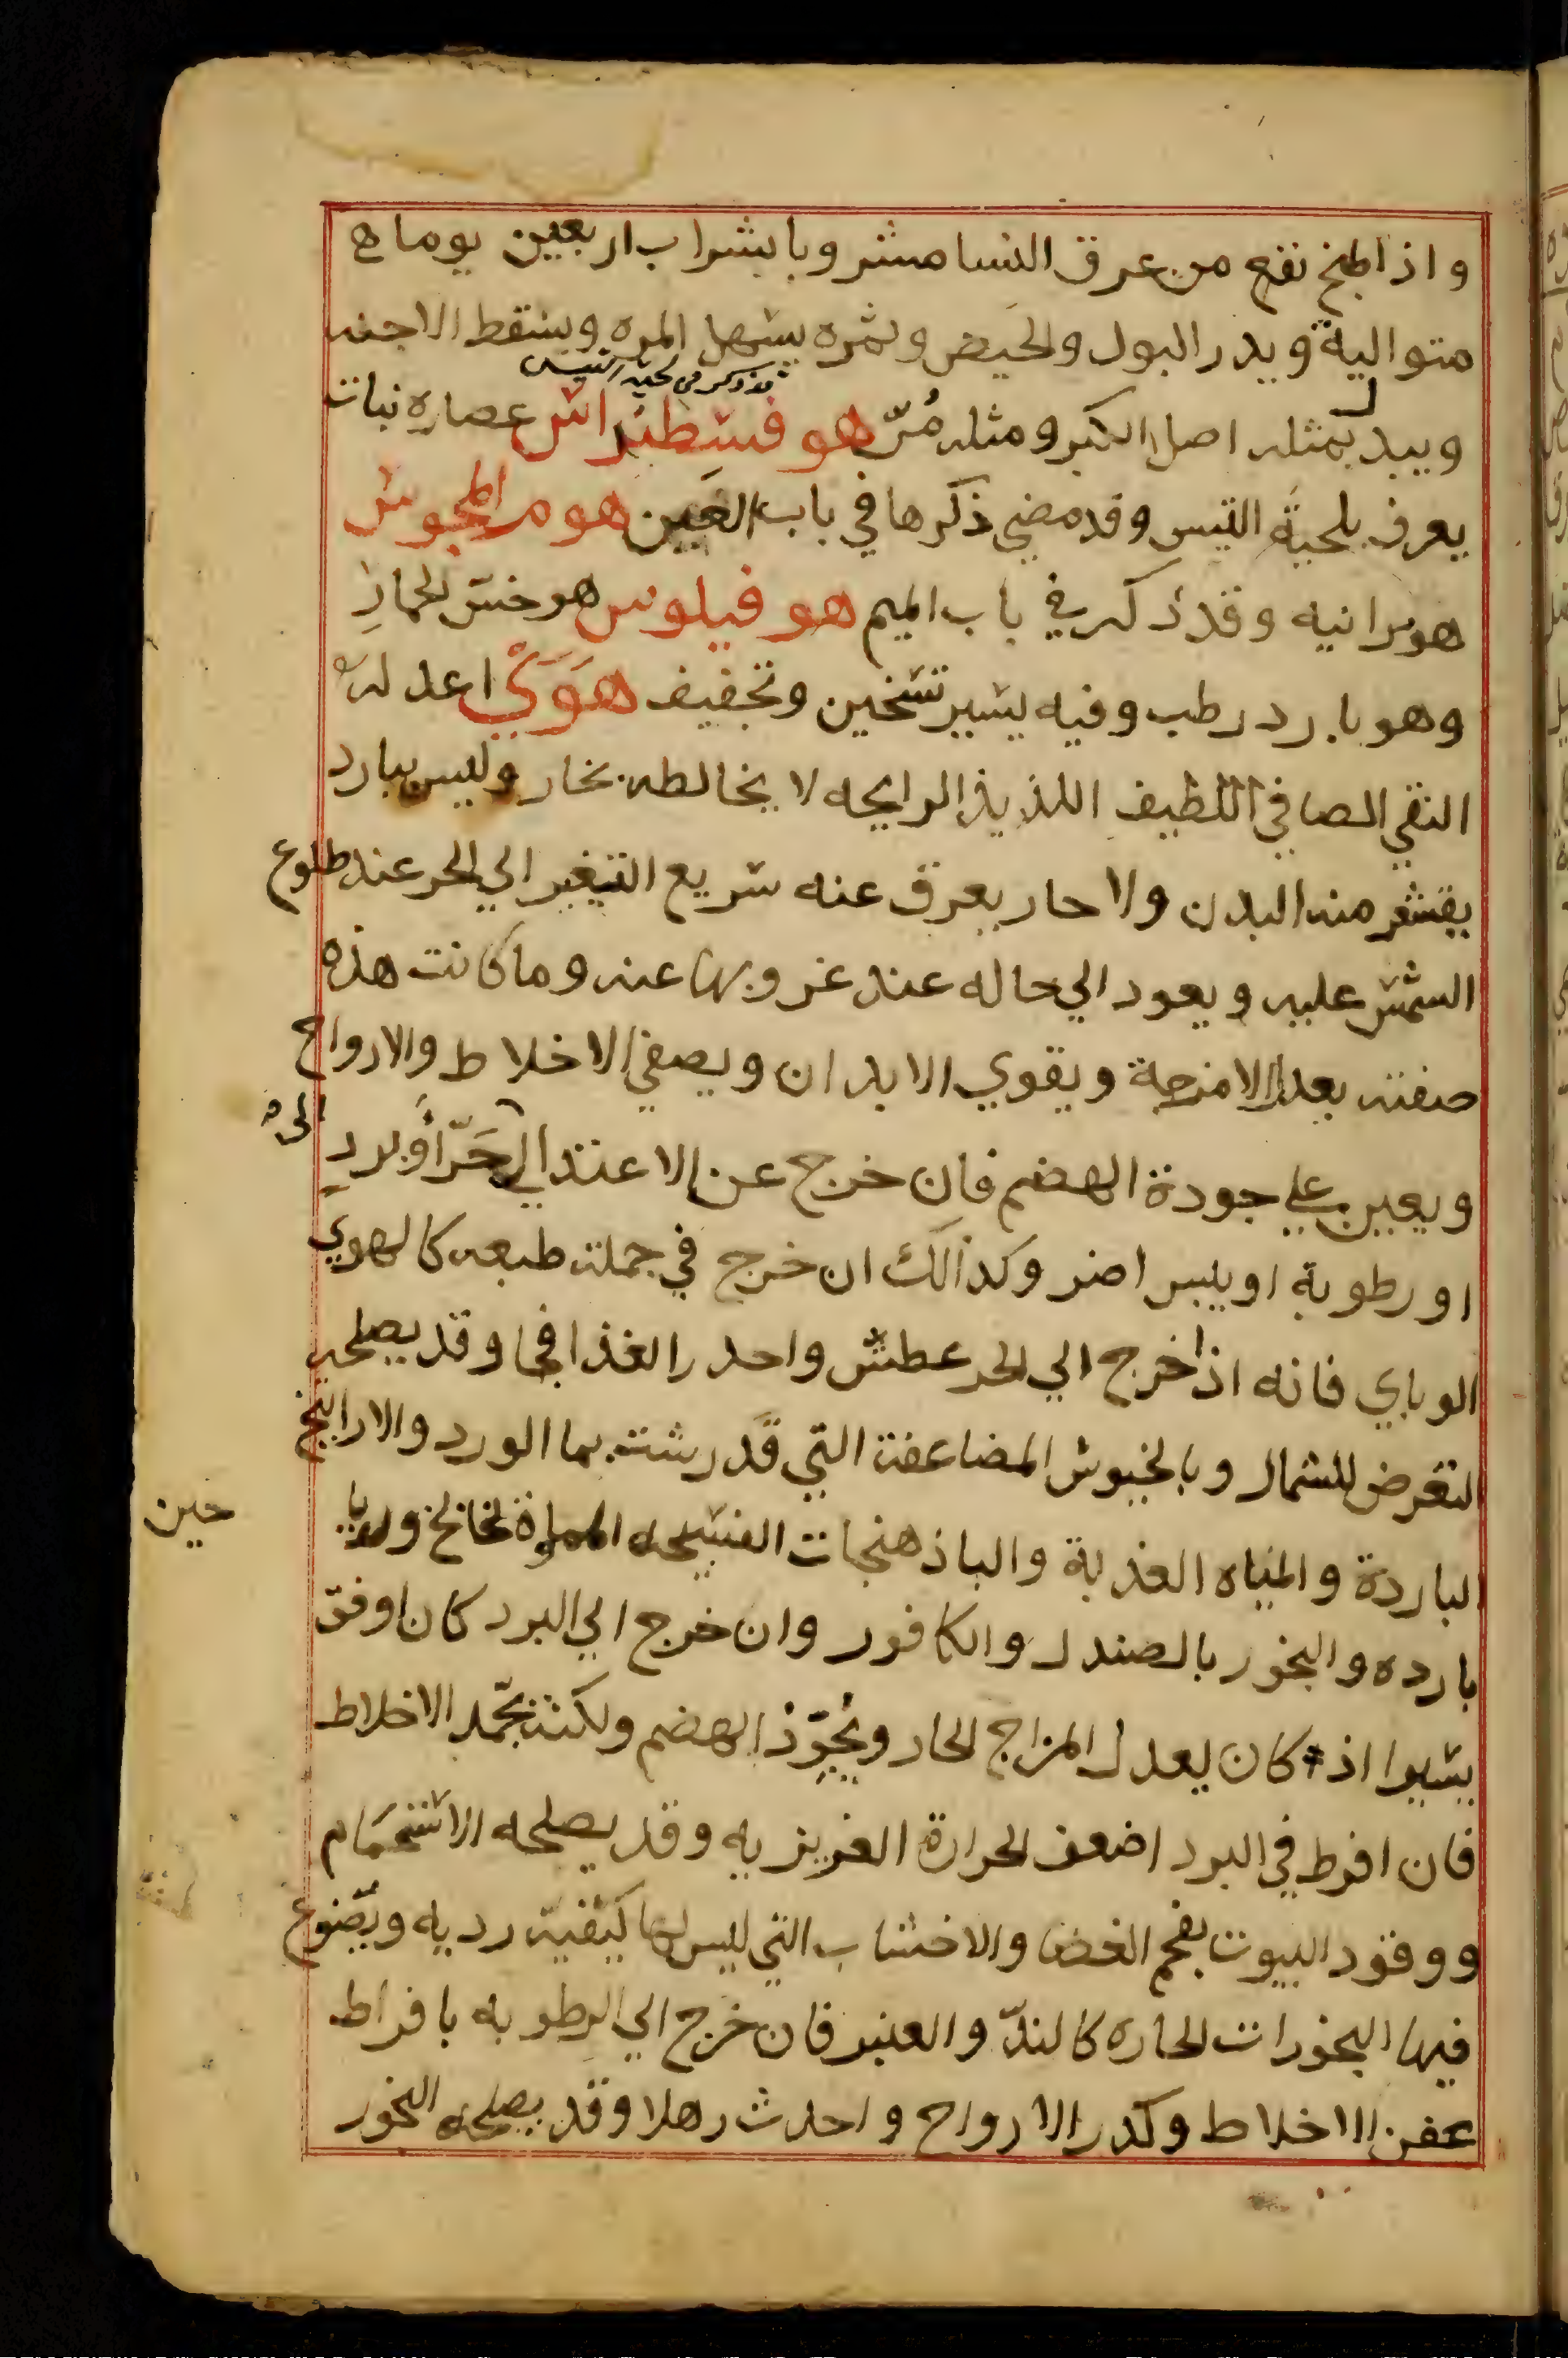 واذا طبخ نفع من عرق النسا مشر وبا بشراب اربعين يوما ه
متوالية ويدر البول والحيض وثمره يسهل المره ويسقط الاجنه
مذكور في لحية التيس
ويبدل بمثله اصل الكبر ومثله مُرّ هو فسطيداش عصاره نبات
يعرف بلحية التيس وقد مضي ذكرها في باب العين هوم المجوش
هو مرانيه وقد ذكر في باب الميم هو فيلوس هو خسّ الحمارِ
وهو بارد رطب وفيه يسير تسخين وتجفيف هَوَيْ اعدله
النقي الصافي اللطيف اللذيذ الرايحه لا يخالطه بخار وليس ببارد
يقشعر منه البدن ولا حار يعرق عنه سريع التغير الي الحر عند طلوع
الشمس عليه ويعود الي حاله عند غروبها عنه وما كانت هذه
صفته يعدل الامزجة ويقوي الابدان ويصفي الاخلاط والارواح
ويعين علي جودة الهضم فان خرج عن الاعتدال حَرّ أو بردٍ
الي
او رطوبة او يبس اضر وكذالك ان خرج في جملة طبعه كالهوي
الوباي فانه اذا خرج الي الحر عطش واحدر الغذا فجا وقد يصلحه
التعرض للشمال وبالخيوش المضاعفة التي قد رشت بما الورد والاراييح
الباردة والمياه العذبة والباذهنجات الفسيحه المملوة لخالخ ورياحين
بارده والبخور بالصندل والكافور وان خرج الي البرد كان اوفق
يسيرا اذ كان يعدل المزاج الحار ويُجوّد الهضم ولكنه يجّمد الاخلاط
فان افرط في البرد اضعف الحرارة الغريزيه وقد يصلحه الاستحمَام
ووقود البيوت بفحم الغضا والاخشاب التي ليس لها كيفية رديه ويضوع
فيها البخورات الحاره كالندّ والعنبر فان خرج الي الرطوبه بافراط
عفن الاخلاط وكدر الارواح واحدث رهلا وقد يصلحه البخور